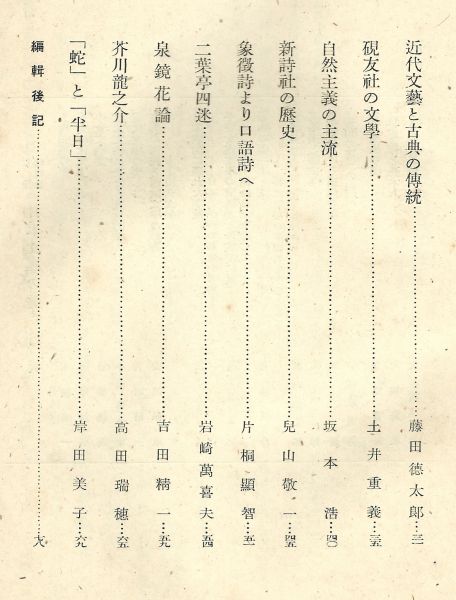 近代文藝と古典の傳統……藤田德太郎…三一
硯友社の文學……土井重義…三五
自然主義の主流……坂本浩…四〇
新詩社の歷史……兒山敬一…四五
象徵詩より口語詩へ……片桐顯智…五一
二葉亭四迷……岩崎萬喜夫…五四
泉鏡花論……吉田精一…五九
芥川龍之介……高田瑞穗…六五
「蛇」と「半日」……岸田美子…六九
編輯後記……七八